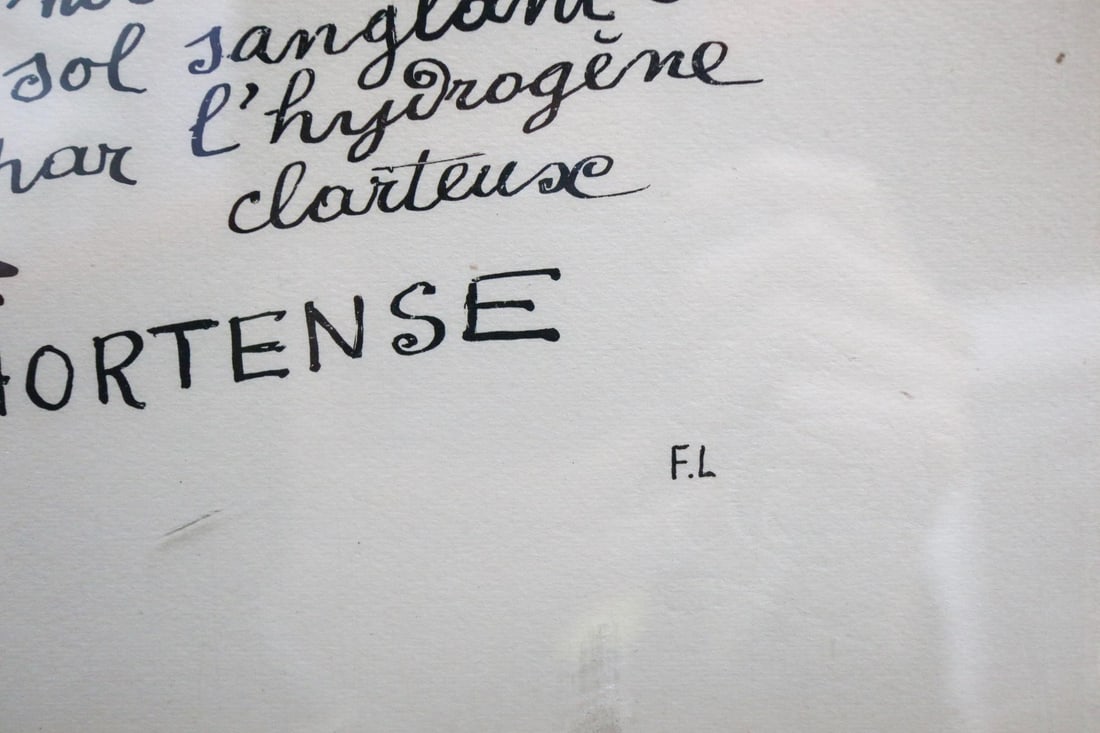 sol sanglant
par l'hydrogène
clarteuse
HORTENSE
F.L